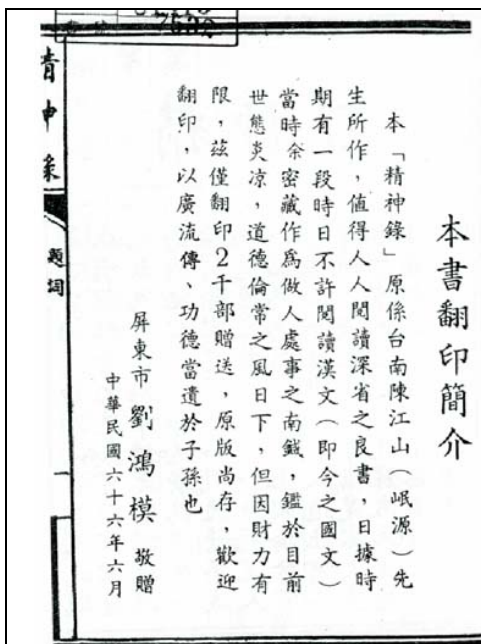 本書翻印簡介
本「精神錄」原係台南陳江山(岷源)先
生所作,值得人人閱讀深省之良書,日據時
期有一段時日不許閱讀漢文(即今之國文)
當時余密藏作爲做人處事之南鍼,鑑於目前
世態炎凉,道德倫常之風日下,但因財力有
限,茲僅翻印2千部贈送,原版尚存,歡迎
翻印,以廣流傳、功德當遺於子孫也
屏東市 劉鴻模 敬贈
中華民國六十六年六月
精神錄
題詞